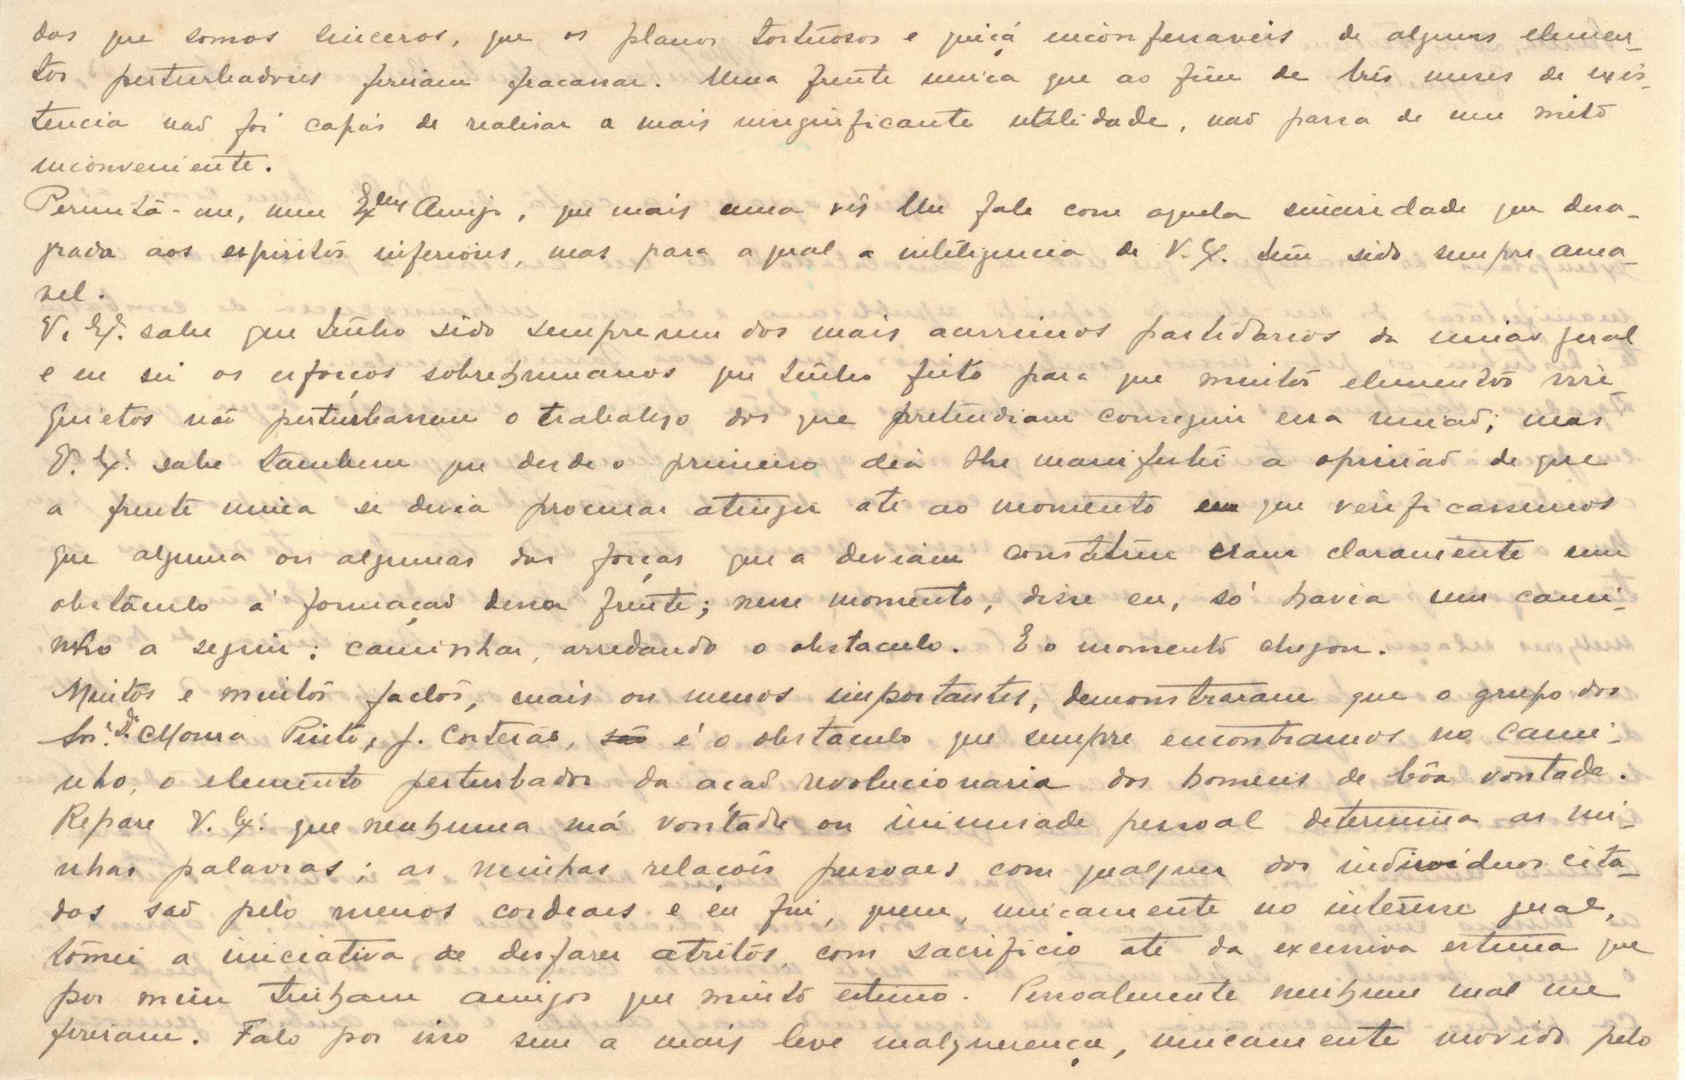 dos que somos sinceros, que os planos tortuosos e quiçá inconfessaveis de alguns elemen-
tos perturbadores fizeram fracassar. Uma frente unica que ao fim de três meses de exis-
tencia não foi capás de realisar a mais insignificante utilidade, não passa de um mito
inconveniente.
Permita-me, meu Exmº Amigo, que mais uma vês lhe fale com aquela sinceridade que desa-
grada aos espiritos inferiores, mas para a qual a inteligencia de V. Ex. tem sido sempre ama-
vel.
V. Ex. sabe que tenho sido sempre um dos mais acerrimos partidarios da união geral
e eu sei os esforços sobrehumanos que tenho feito para que muitos elementos irre-
quietos não perturbassem o trabalho dos que pretendiam conseguir essa união; mas
V. Ex. sabe tambem que desde o primeiro dia lhe manifestei a opinião de que
a frente unica se devia procurar atingir até ao momento em que verificassemos
que alguma ou algumas das forças que a deviam constituir eram claramente um
obstáculo á formação dessa frente; nesse momento, disse eu, só havia um cami-
nho a seguir: caminhar, arredando o obstaculo. E o momento chegou.
Muitos e muitos factos, mais ou menos importantes, demonstraram que o grupo dos
Snr. Dr. Moura Pinto, J. Cortesão, é o obstaculo que sempre encontramos no cami-
nho, o elemento perturbador da acão revolucionaria dos homens de bôa vontade.
Repare V. Ex. que nenhuma má vontade ou inimisade pessoal determina as mi-
nhas palavras; as minhas relações pessoaes com qualquer dos individuos cita-
dos são pelo menos cordeaes e eu fui, quem, unicamente no interesse geral,
tomei a iniciativa de desfazer atritos, com sacrificio até da excessiva estima que
por mim tinham amigos que muito estimo. Pessoalmente nenhum mal me
fizeram. Falo por isso sem a mais leve malquerença, unicamente movido pelo